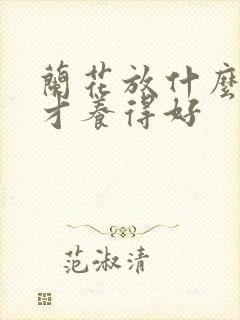 蘭花放什麼
才養得好
范淑清